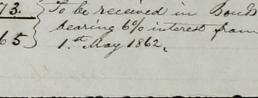 73. } To be received in Bonds
bearing 6% interest from
65 } 1.st May 1862.